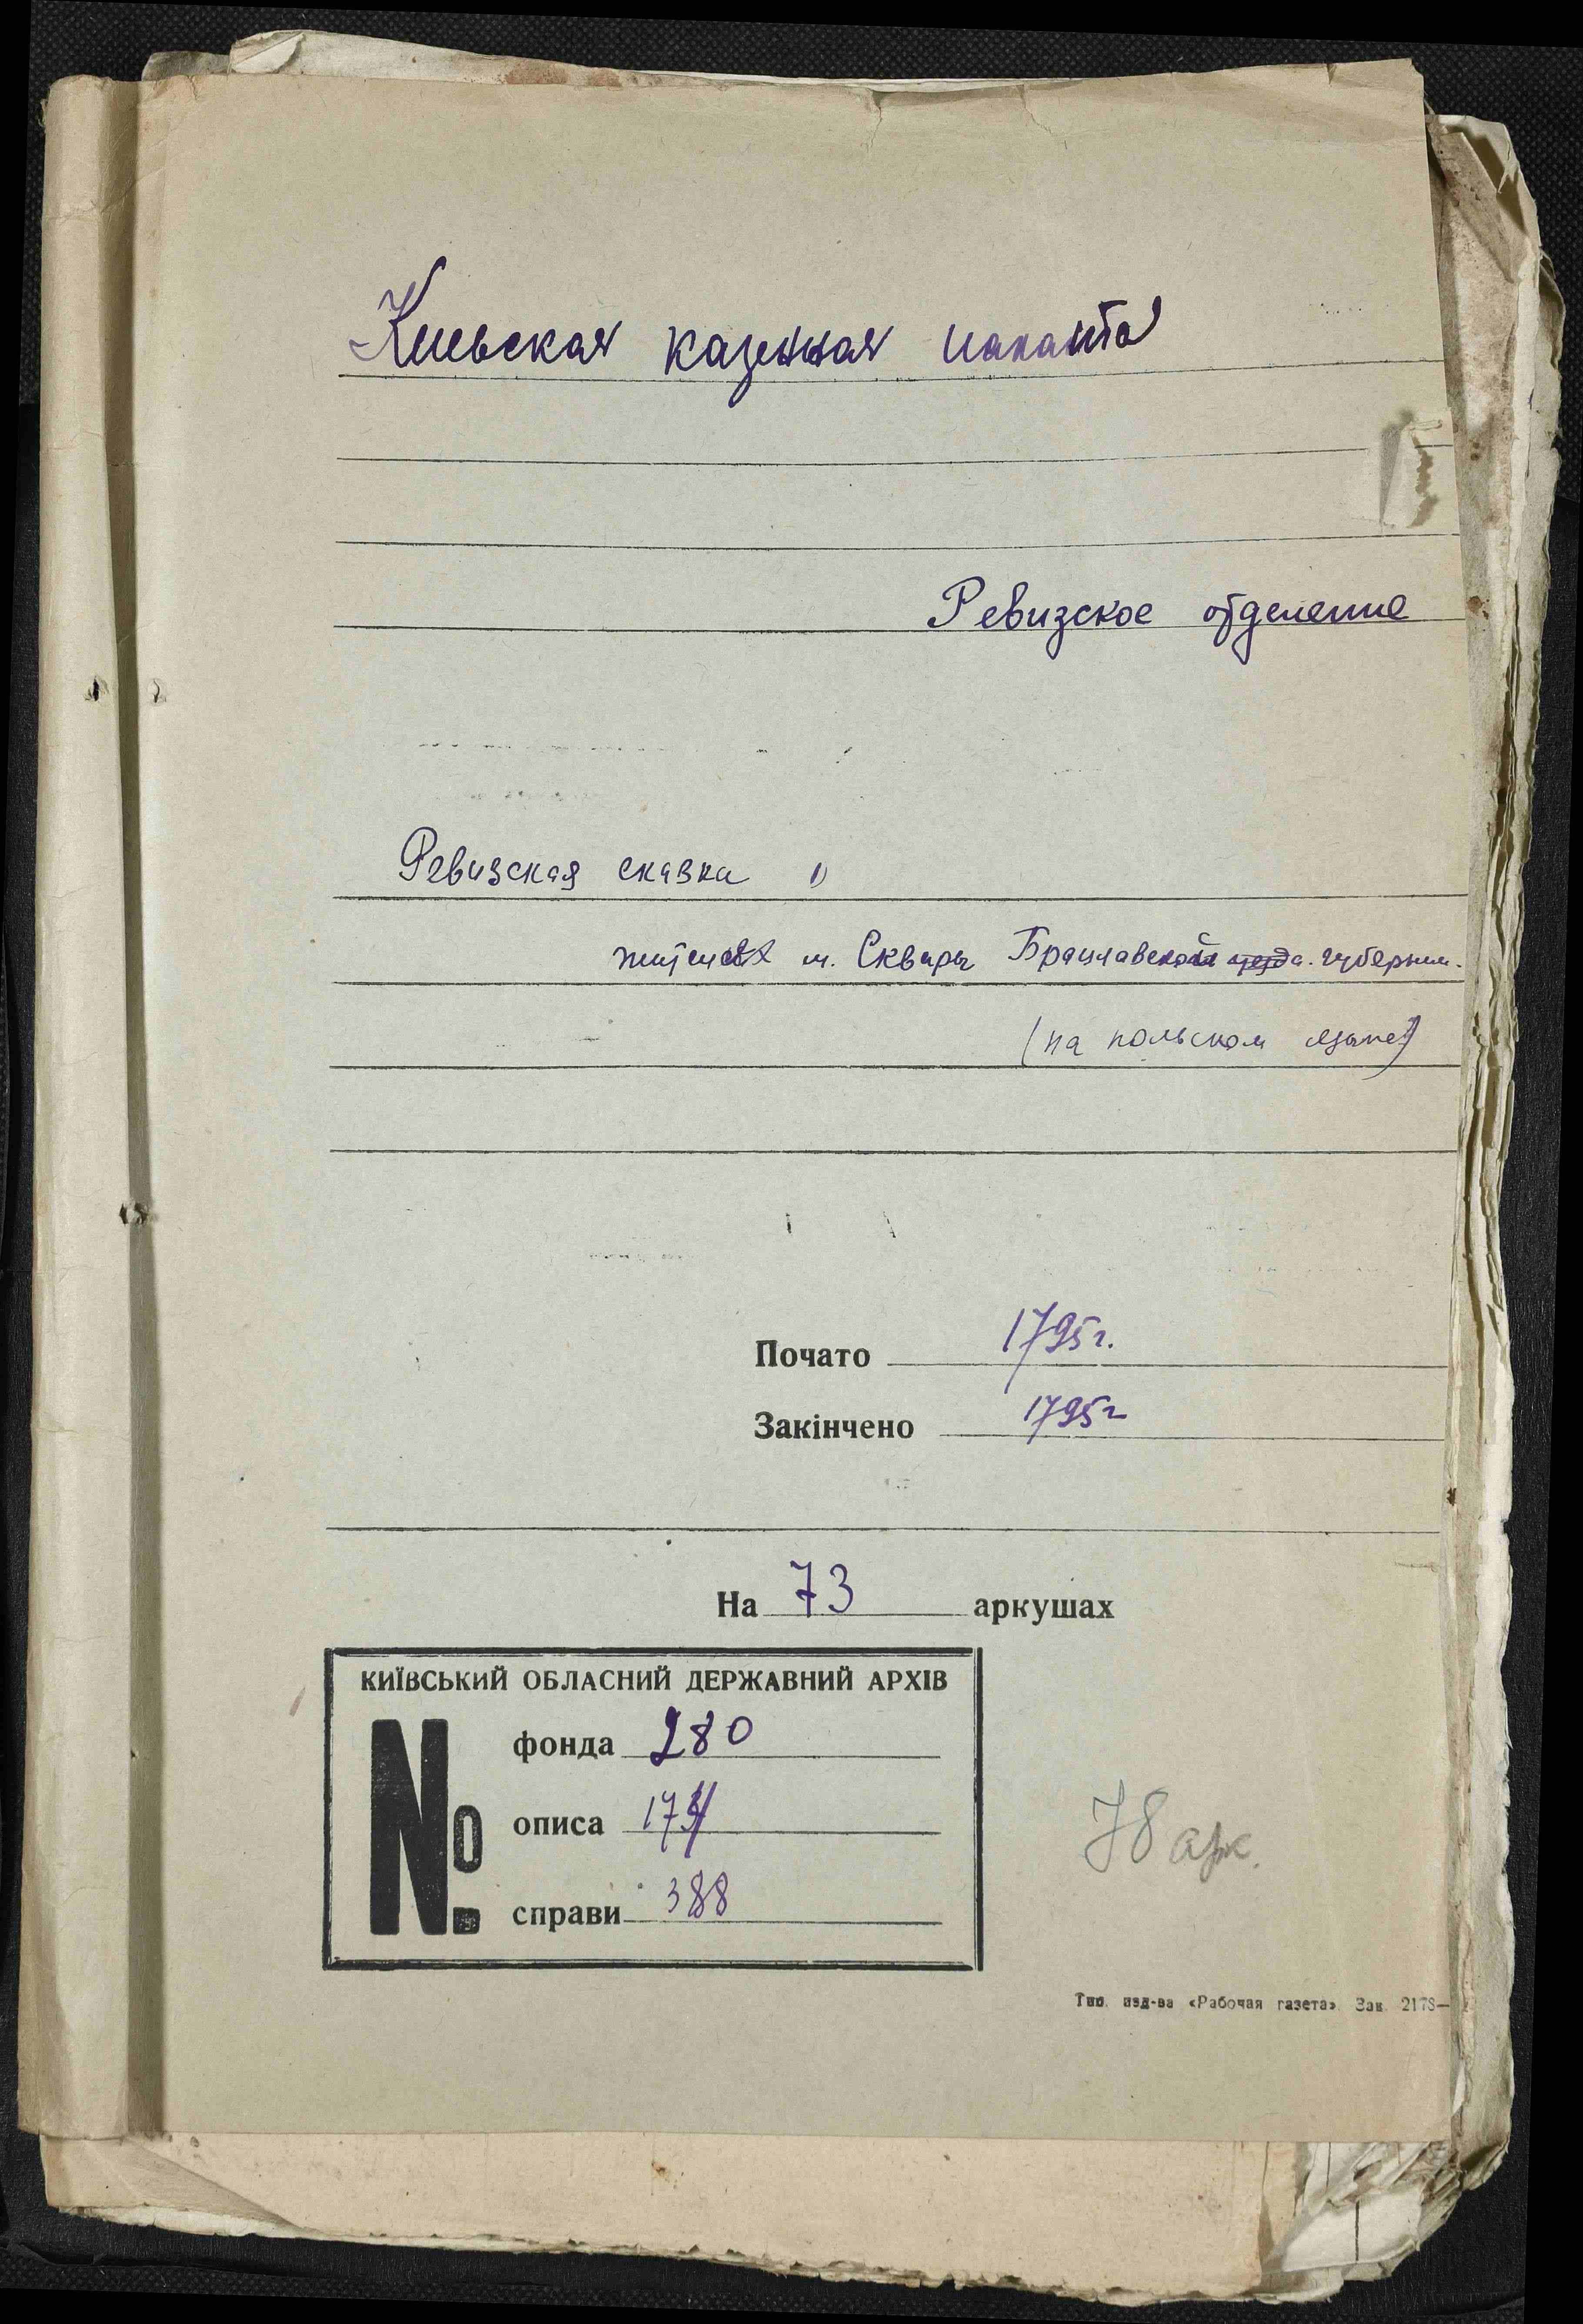 Киевская казенная палата
Ревизское отделение
Ревизская сказка
жителей м. Сквиры Брацлавской уезда. губернии.
(на польском языке)
Почато 1795 г.
Закінчено 1795 г
На 73 аркушах
КИЇВСЬКИЙ ОБЛАСНИЙ ДЕРЖАВНИЙ АРХІВ
№ фонда 280
описа 174
справи 388
78 арк.
Тип. изд-ва «Рабочая газета» Зак. 2178—